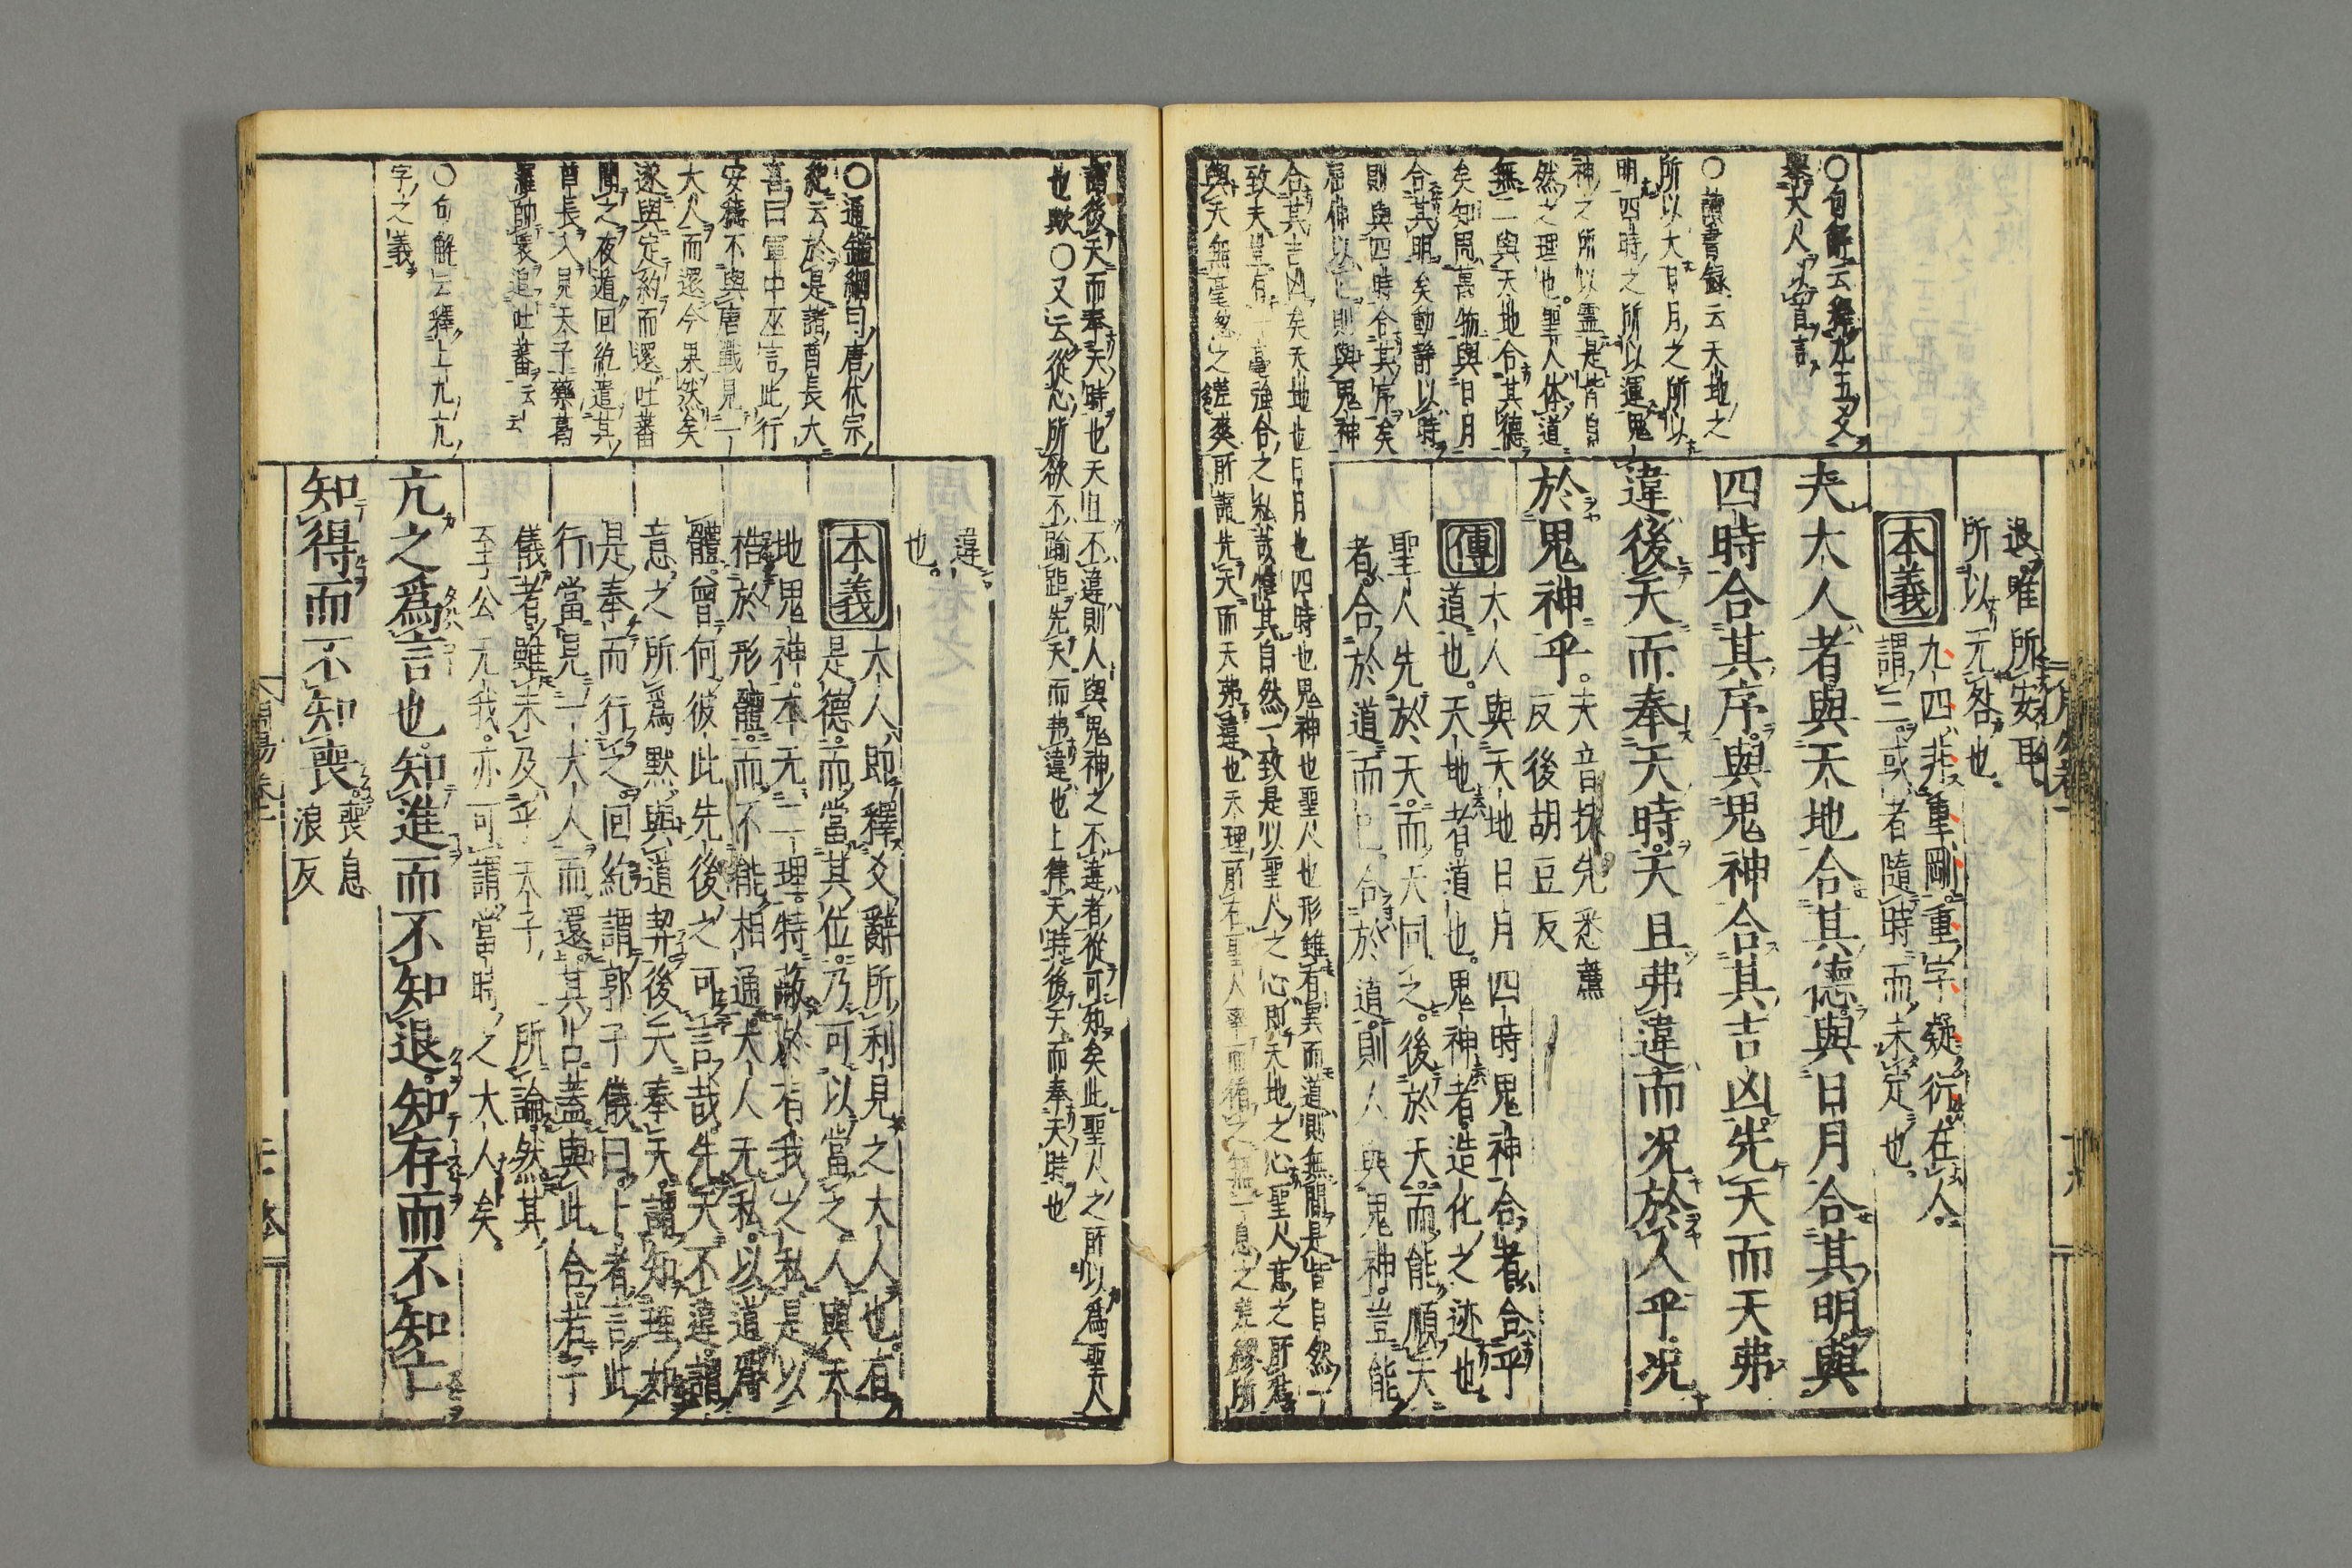 ○句解云釋九五爻
擧大人以首言
○讀書録云天地之
所以大日月之所以
明四時之所以運鬼
神之所以霊是皆自
然之理也聖人体道
無二與天地合其德
矣知周萬物與日月
合其明矣動静以時
則與四時合其序矣
屈伸以正則與鬼神
合其吉凶矣天地也日月也四時也鬼神也聖人也形雖有異而道則無間是皆自然一
致夫豈有一毫強合之私哉惟其自然一致是以聖人之心即天地之心聖人意之所爲
與天無毫忽之差爽所謂先天而天弗違也天理所在聖人奉而循之無一息之差繆所
退唯所安耳
所以无咎也
本義
九四非重剛重字疑衍在人
謂三或者隨時而未定也
夫大人者與天地合其德與日月合其明與
四時合其序與鬼神合其吉凶先天而天弗
違後天而奉天時天且弗違而况於人乎况
於鬼神乎
夫音扶先悉薦
反後胡豆反
傳
大人與天地日月四時鬼神合者合乎
道也天地者道也鬼神者造化之迹也
聖人先於天而天同之後於天而能順天
者合於道而已合於道則人與鬼神豈能
謂後天而奉天時也天且不違則人與鬼神之不違者從可知矣此聖人之所以爲聖人
也歟○又云從心所欲不踰距先天而弗違也上律天時後天而奉天時也
○通鑑綱目唐代宗
紀云於是諸酋長大
喜曰軍中巫言此行
安穏不與唐戰見一
大人而還今果然矣
遂與定約而還吐蕃
聞之夜遁回紇遣其
酋長入見天子藥葛
羅帥衆追吐蕃云云
○句解云釋上九亢
字之義
違
也
本義
大人即釋爻辭所利見之大人也有
是德而當其位乃可以當之人與天
地鬼神本无二理特蔽於有我之私是以
梏於形體而不能相通大人无私以道爲
體曾何彼此先後之可言哉先天不違謂
意之所爲默與道契後天奉天謂知理如
是奉而行之回紇謂郭子儀曰卜者言此
行當見一大人而還其占蓋與此合若子
儀者雖未及乎夫子之所論然其
至公无我亦可謂當時之大人矣
亢之爲言也知進而不知退知存而不知亡
知得而不知喪
喪息
浪反
周易卷一